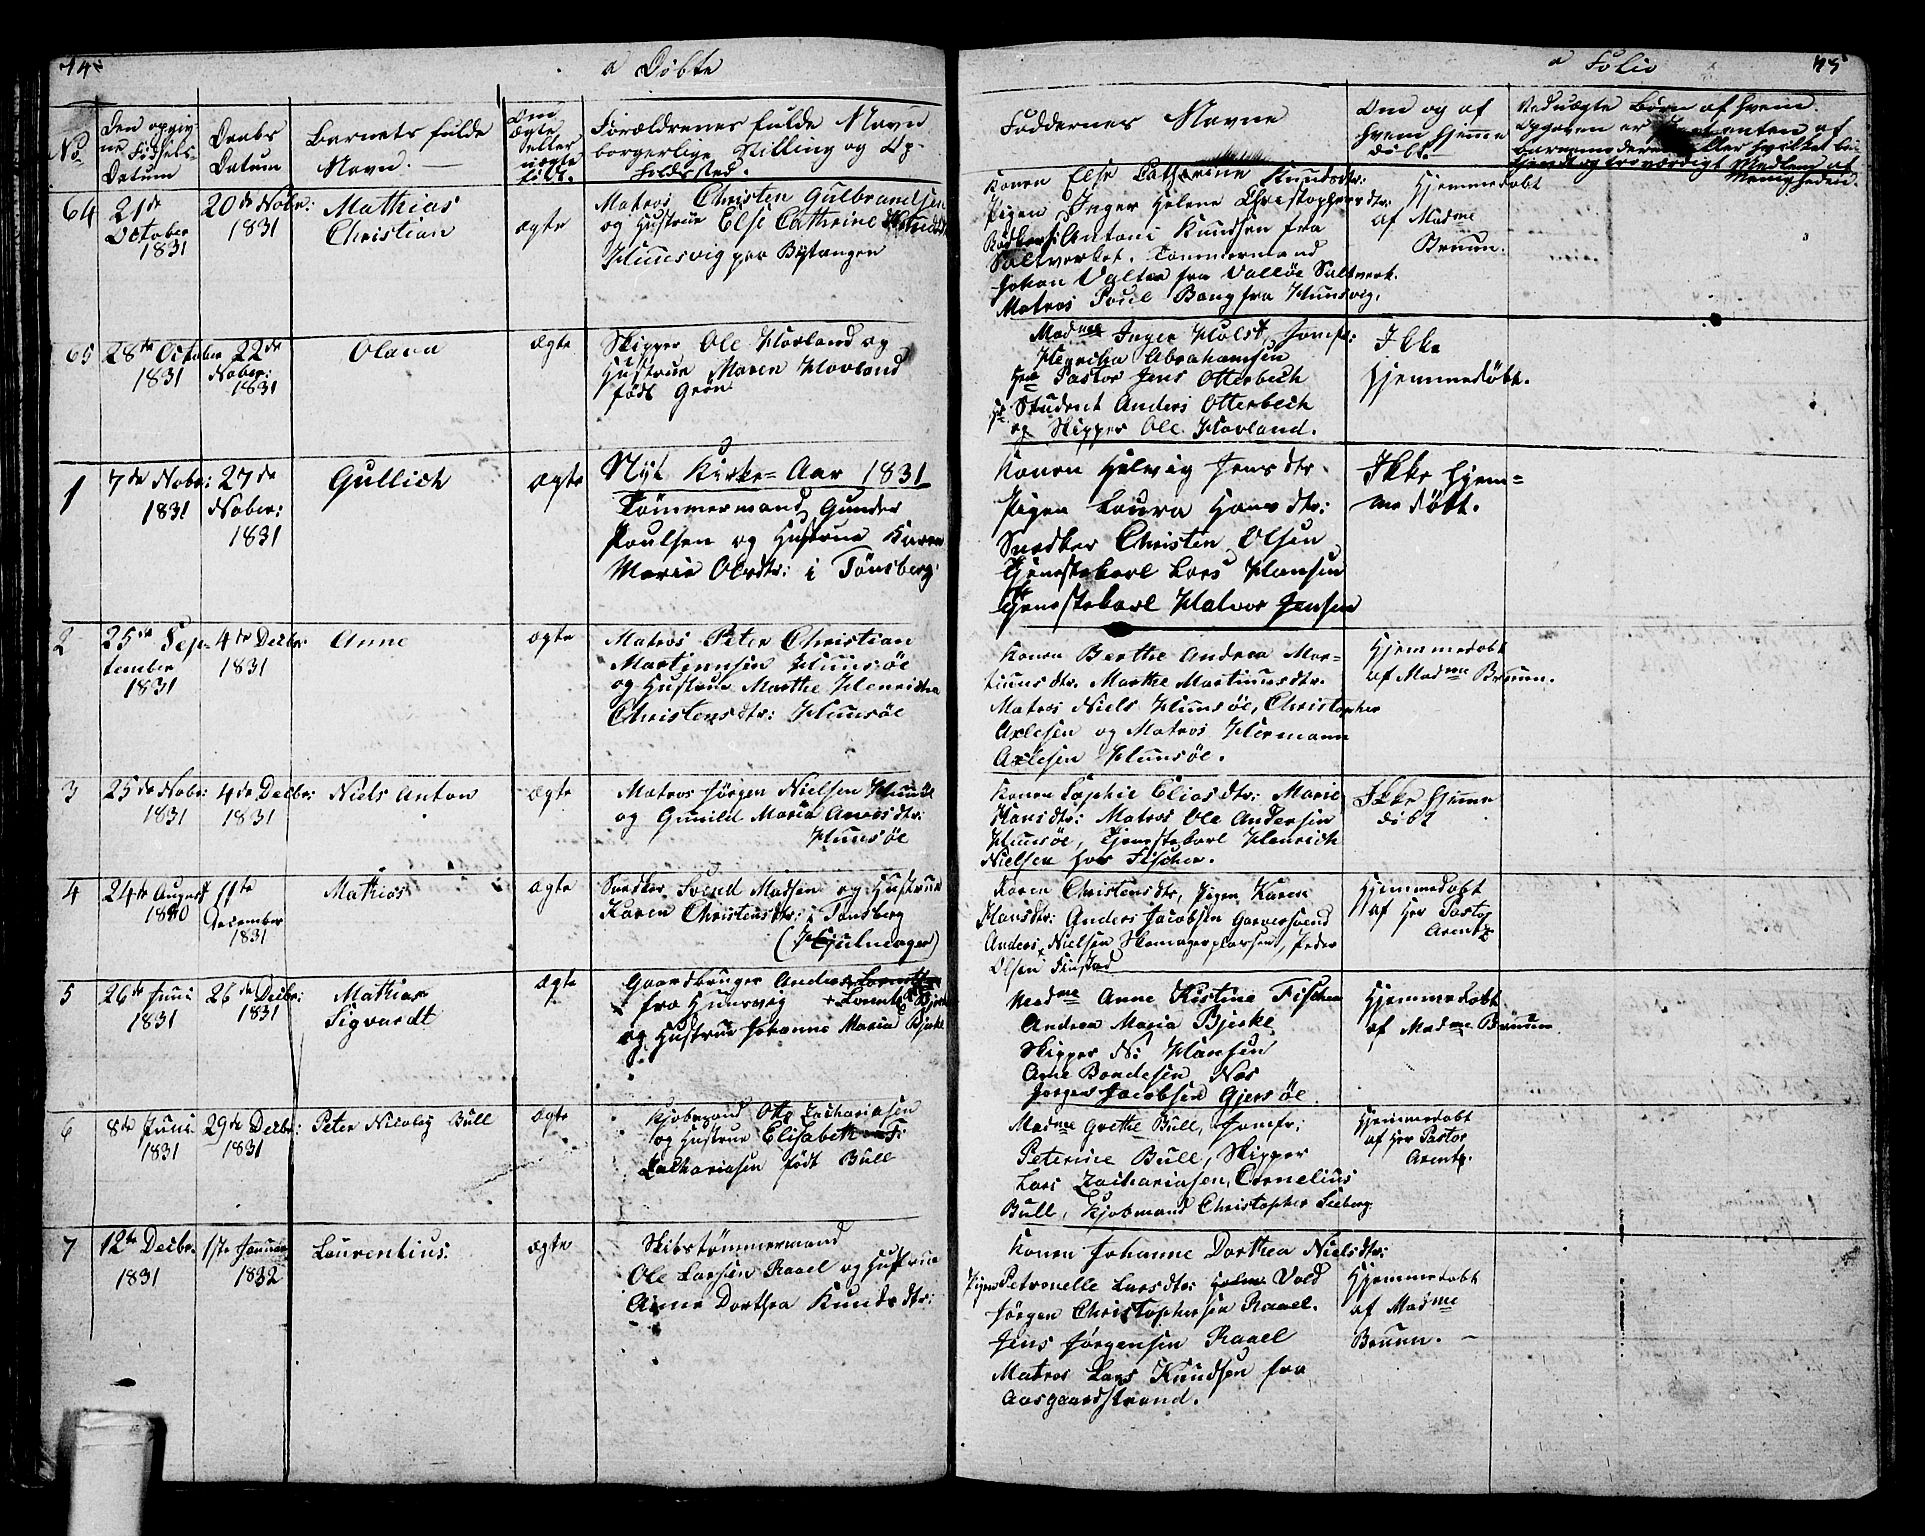 a Døbte
No
Den opgiv-
ne Fødsels-
Datum
Daabs
Datum
Barnets fulde
Navn.
Om
ægte
eller
uægte
født.
Forældrenes fulde Navn
borgerlige Stilling og Op-
holdssted.
64
21de
October
1831
20de Nobr:
1831
Mathias
Christian
ægte
Matros Christen Gulbrandsen
og Hustrue Else Cathrine
Huusvig paa Bytangen
65
28de October
1831
22de
Nober:
1831
Olava
ægte
Skipper Ole Havland og
Hustrue Maren Havland
født Grøn
1
7de Nobr:
1831
27de
Nober:
1831
Gullich
ægte
Nyt Kirke-Aar 1831
Tømmermand Gunder
Poulsen og Hustrue Karen
Marie Olesdtr: i Tønsberg
2
25de Sep-
tember
1831
4de Decbr:
1831
Anne
ægte
Matros Peter Christian
Martinusen Huusøe
og Hustrue Marthe Henricha
Christensdtr: Huusøe
3
25de Nobr:
1831
4de Decbr:
1831
Niels Anton
ægte
Matros Jørgen Nielsen
og Gunild Maria
Huusøe
4
24de August
1830
11te
December
1831
Mathias
ægte
Snedker Svend Madsen og Hustrue
Karen Christensdtr: i Tønsberg
(Hjulmager)
5
26de Juni
1831
26de Decbr:
1831
Mathias
Sigvardt
ægte
Gaardbruger Anders
fra Huusvig Bjerke
og Hustrue Johanne Maria Bjerke
6
8de Juni
1831
29de Decbr:
1831
Peter Nicolay Bull
ægte
Kjøbmand Otto Zachariasen
og Hustrue Elisabeth
Zachariasen født Bull
7
12te Decbr.
1831
1ste Januar
1832
Laurentius.
ægte
Skibstømmermand
Ole Larsen Raael og Hustrue
Anne Dorthea Knudsdtr:
a Folio
75
Faddernes Navne
Om og af
hvem hjemme
døbt.
Ved uægte Børn af hvem
Opgaven er
Medlem af
Menigheden.
Konen Else Cathrine Knudsdtr:
Pigen Inger Helene Christophersdtr:
Antoni Knudsen fra
Saltverket. Tømmermand
Johan Valter fra Valløe Saltverk.
Matros Poul Bang fra Huusvig.
Hjemmedøbt
af Madme
Bruun.
Madme Inger Holst, Jomfr:
Henricha Abrahamsen
Hrr Pastor Jens Otterbech
Hr Student Anders Otterbech
og Skipper Ole Havland.
Ikke
hjemmedøbt.
Konen Helvig Jensdtr.
Pigen Laura Hansdtr:
Snedker Christen Olsen
Tjenestekarl Lars Hansen
Tjenestekarl Halvor Jensen
Ikke hjem-
me døbt.
Konen Berthe Andrea Mar-
tinusdtr. Marthe Martinusdtr.
Matros Niels Huusøe, Christopher
Axelsen og Matros Hermann
Axelsen Huusøe.
Hjemmedøbt
af Madme Bruun.
Konen Sophie Eliasdtr: Marie
Hansdtr: Matros Ole Andersen
Huusøe, Tjenestekarl Henrich
Nielsen hos Fischer.
Ikke hjemme
døbt
Karen Christensdtr, Pigen Karen
Hansdtr: Anders Jacobsen Garversvend
Anders Nielsen Skomager, Peder
Olsen
Hjemmedøbt
af Her Pastor
Arentz
Madme Anne Kistine Fischer
Andrea Maria Bjerke
Skipper N: Hansen
Arne Bondesen Næs
Jørgen Jacobsen Gjersøe.
Hjemmedøbt
af Madme Bruun
Madme Grethe Bull, Jomfr:
Peterine Bull, Skipper
Lars Zachariasen, Cornelius
Bull, Kjøbmand Christopher Seeberg
Hjemmedøbt
af Her Pastor
Arentz.
Konen Johanne Dorthea Nielsdtr:
Pigen Petronelle Larsdtr: Vold
Jørgen Christophersen Raael.
Jens Jørgensen Raael
Matros Lars Knudsen fra
Aasgaardstrand.
Hjemmedøbt
af Madme
Bruun.